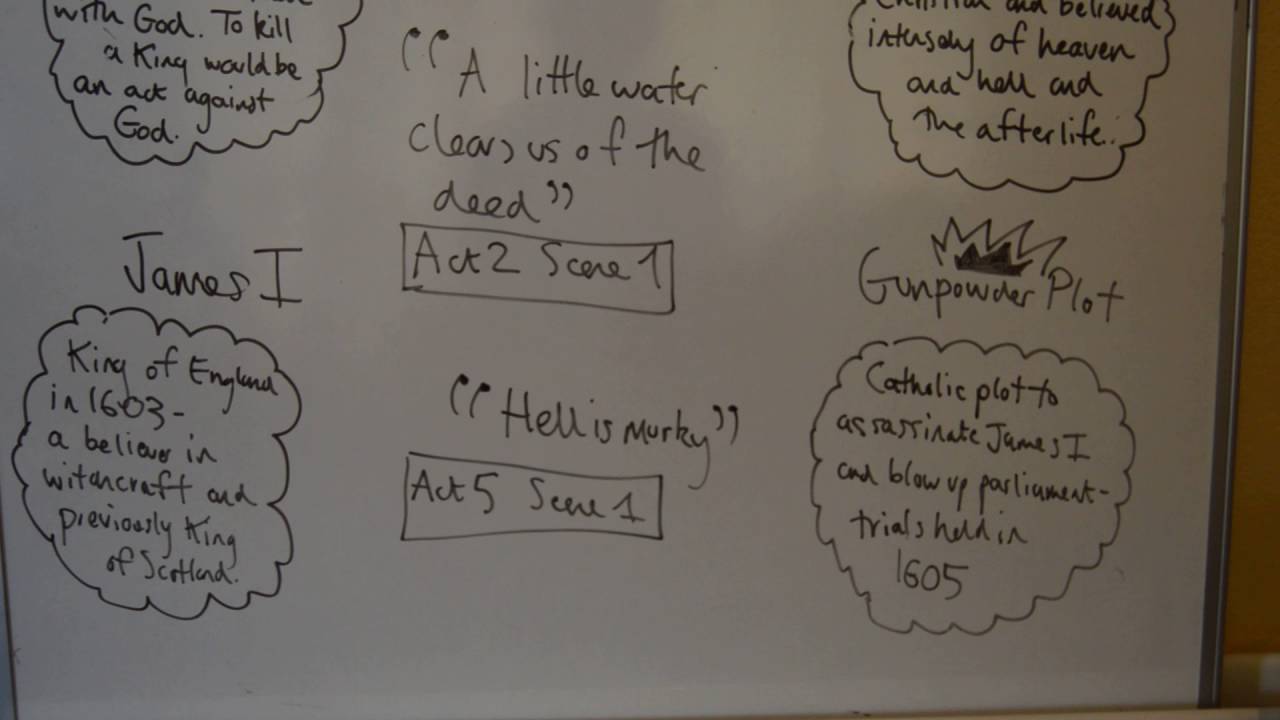 with God. To kill
a King would be
an act against
God.
"A little water
clears us of the
deed"
Act 2 Scene 1
Christian and believed
intensely of heaven
and hell and
the afterlife.
James I
King of England
in 1603-
a believer in
witchcraft and
previously King
of Scotland.
"Hell is murky"
Act 5 Scene 1
Gunpowder Plot
Catholic plot to
assassinate James I
and blow up parliament-
trials held in
1605